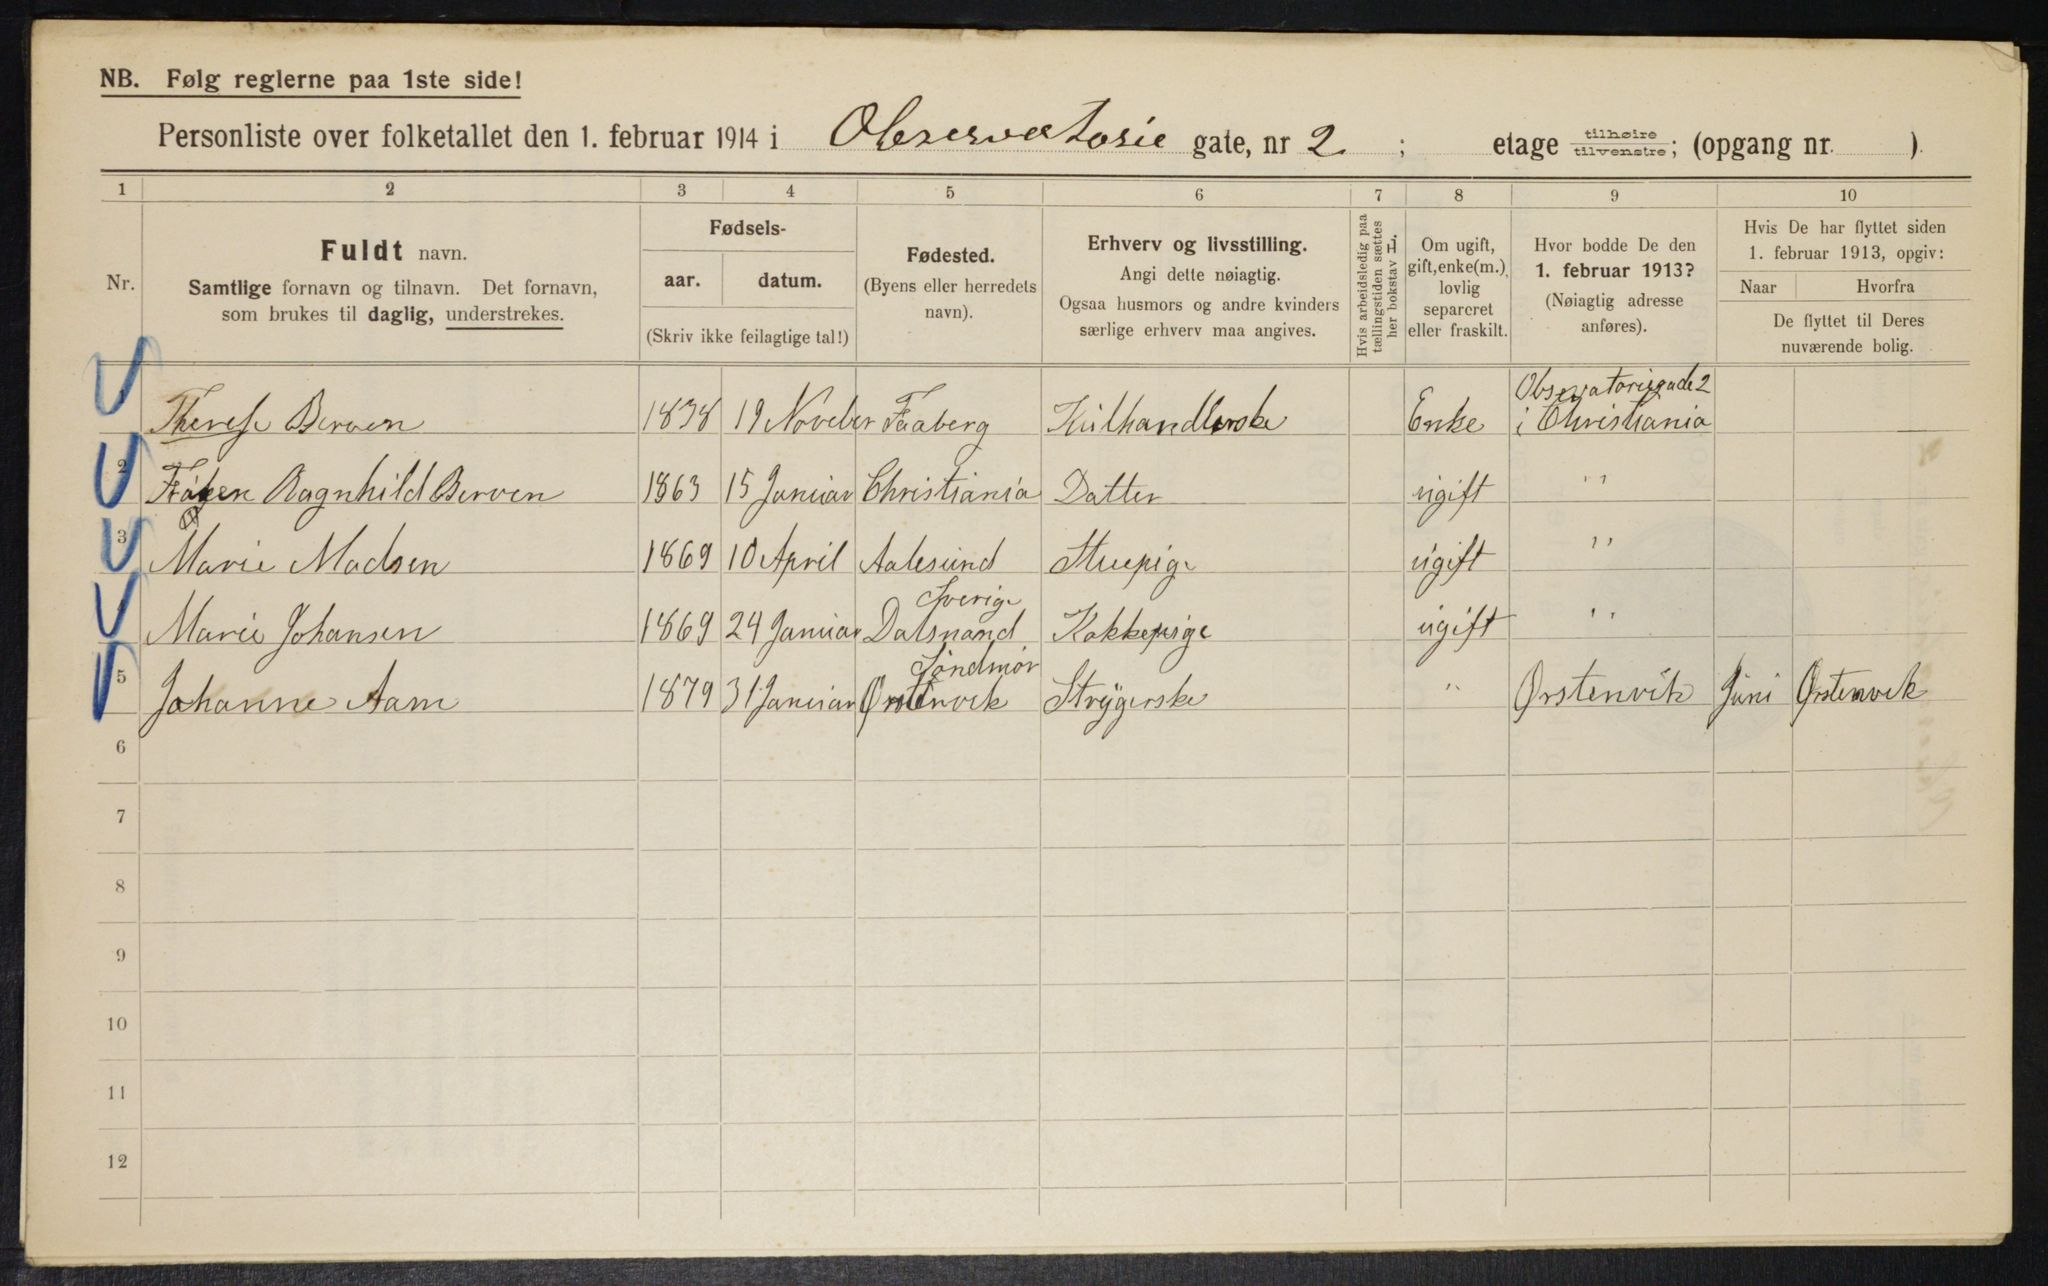 NB. Følg reglerne paa 1ste side!
Personliste over folketallet den 1. februar 1914 i Observatorie gate, nr 2 ; etage tilhøire tilvenstre; (opgang nr. ).
1 2 3 4 5 6 7 8 9 10
Nr.
Fuldt navn.
Samtlige fornavn og tilnavn. Det fornavn,
som brukes til daglig, understrekes.
Fødsels-
aar. datum.
(Skriv ikke feilagtige tal!)
Fødested.
(Byens eller herredets
navn).
Erhverv og livsstilling.
Angi dette nøiagtig.
Ogsaa husmors og andre kvinders
særlige erhverv maa angives.
Hvis arbeidsledig paa
tællingstiden sættes
her bokstav L.
Om ugift,
gift, enke(m.)
lovlig
separeret
eller fraskilt.
Hvor bodde De den
1. februar 1913?
(Nøiagtig adresse
anføres).
Hvis De har flyttet siden
1. februar 1913, opgiv:
Naar Hvorfra
De flyttet til Deres
nuværende bolig.
Observatoriegade 2
Therese Berven 1838 19 Novebr Faaberg Kulhandlerske Enke i Christiania
2 Frøken Ragnhild Berven 1863 15 Januar Christiania Datter ugift "
3 Marie Madsen 1869 10 April Aalesund Stuepige ugift "
Sverige
Marie Johansen 1869 24 Januar Dalsnand Kokkepige ugift "
Söndmör
5 Johanne Aam 1879 31 Januar Ørstenvik Strygerske " Ørstenvik Juni Ørstenvik
6
7
8
9
10
11
12